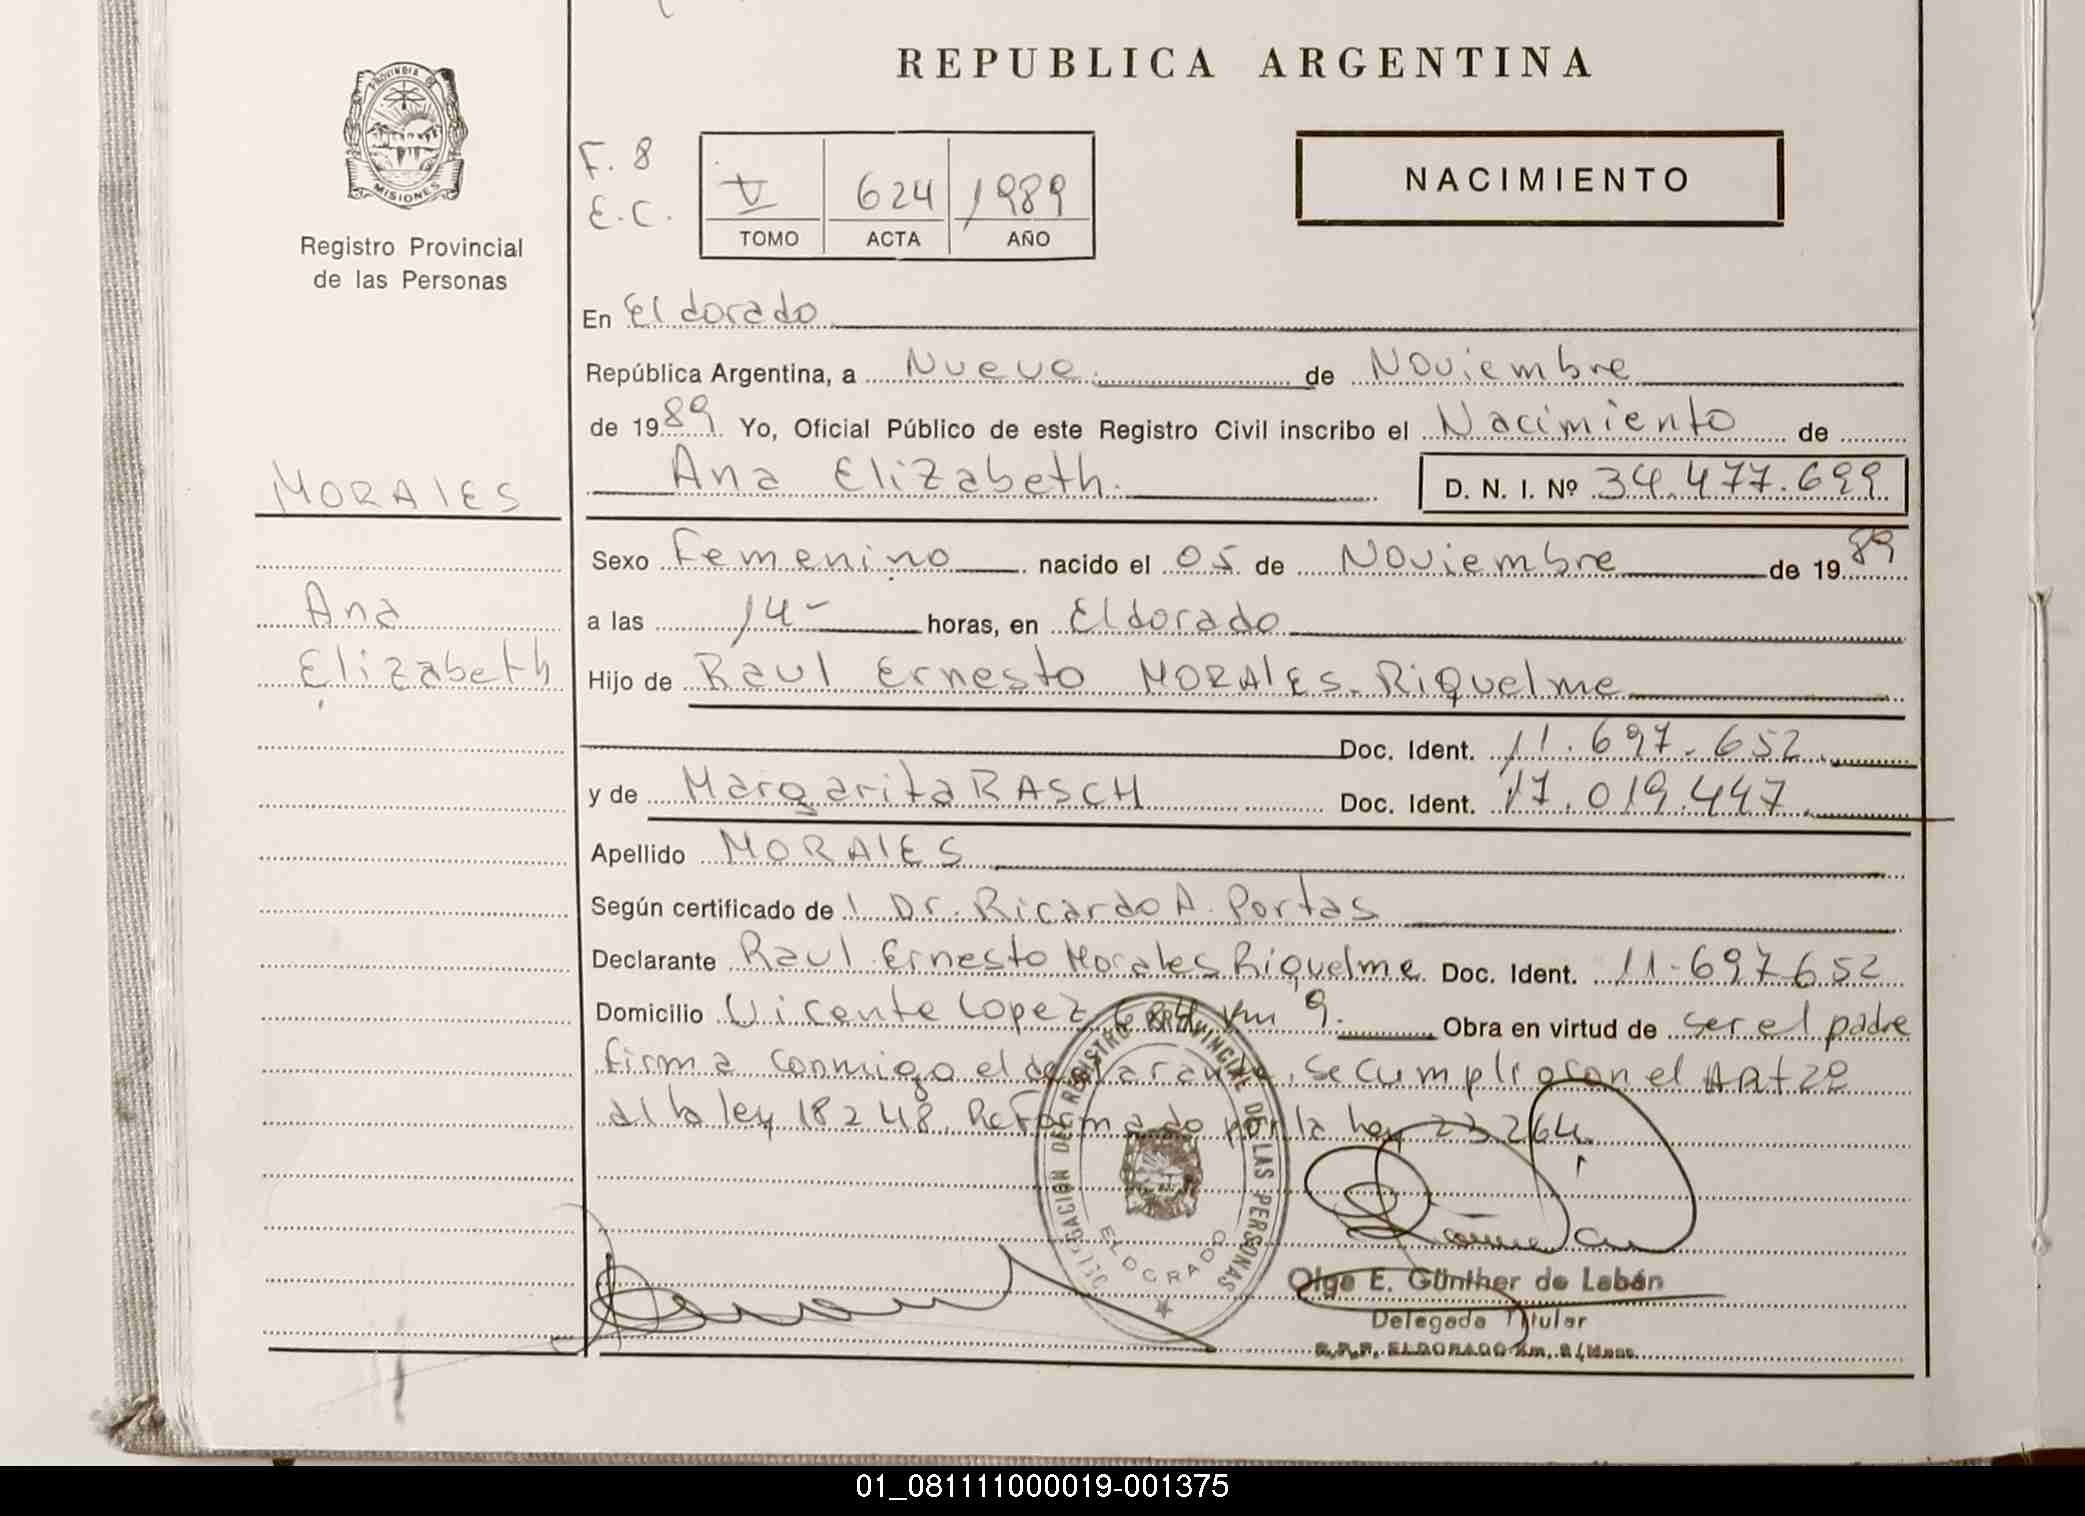 REPUBLICA ARGENTINA
PROVINCIA DE MISIONES
Registro Provincial
de las Personas
F. 8
E.C.
V 624 1989
TOMO ACTA AÑO
NACIMIENTO
En Eldorado
República Argentina, a Nueve de Noviembre
de 1989 Yo, Oficial Público de este Registro Civil inscribo el Nacimiento de
MORALES
Ana Elizabeth. D. N. I. Nº 34.477.699
Sexo Femenino nacido el 05 de Noviembre de 1989
Ana
a las 14- horas, en Eldorado
Elizabeth
Hijo de Raul Ernesto MORALES Riquelme
Doc. Ident. 11.697.652
y de Margarita RASCH Doc. Ident. 17.019.447
Apellido MORALES
Según certificado de l Dr. Ricardo A. Portas
Declarante Raul Ernesto Morales Riquelme Doc. Ident. 11.697652
Domicilio Vicente Lopez km 9. Obra en virtud de ser el padre
firma conmigo el declarante, se cumplio con el Art 2º
d la ley 18248. Reformado por la ley 23264.
DELEGACION DEL REGISTRO PROVINCIAL DE LAS PERSONAS
ELDORADO
Olga E. Günther de Labán
Delegada Titular
R.P.P. ELDORADO Km. 9 / Mnes.
01_081111000019-001375